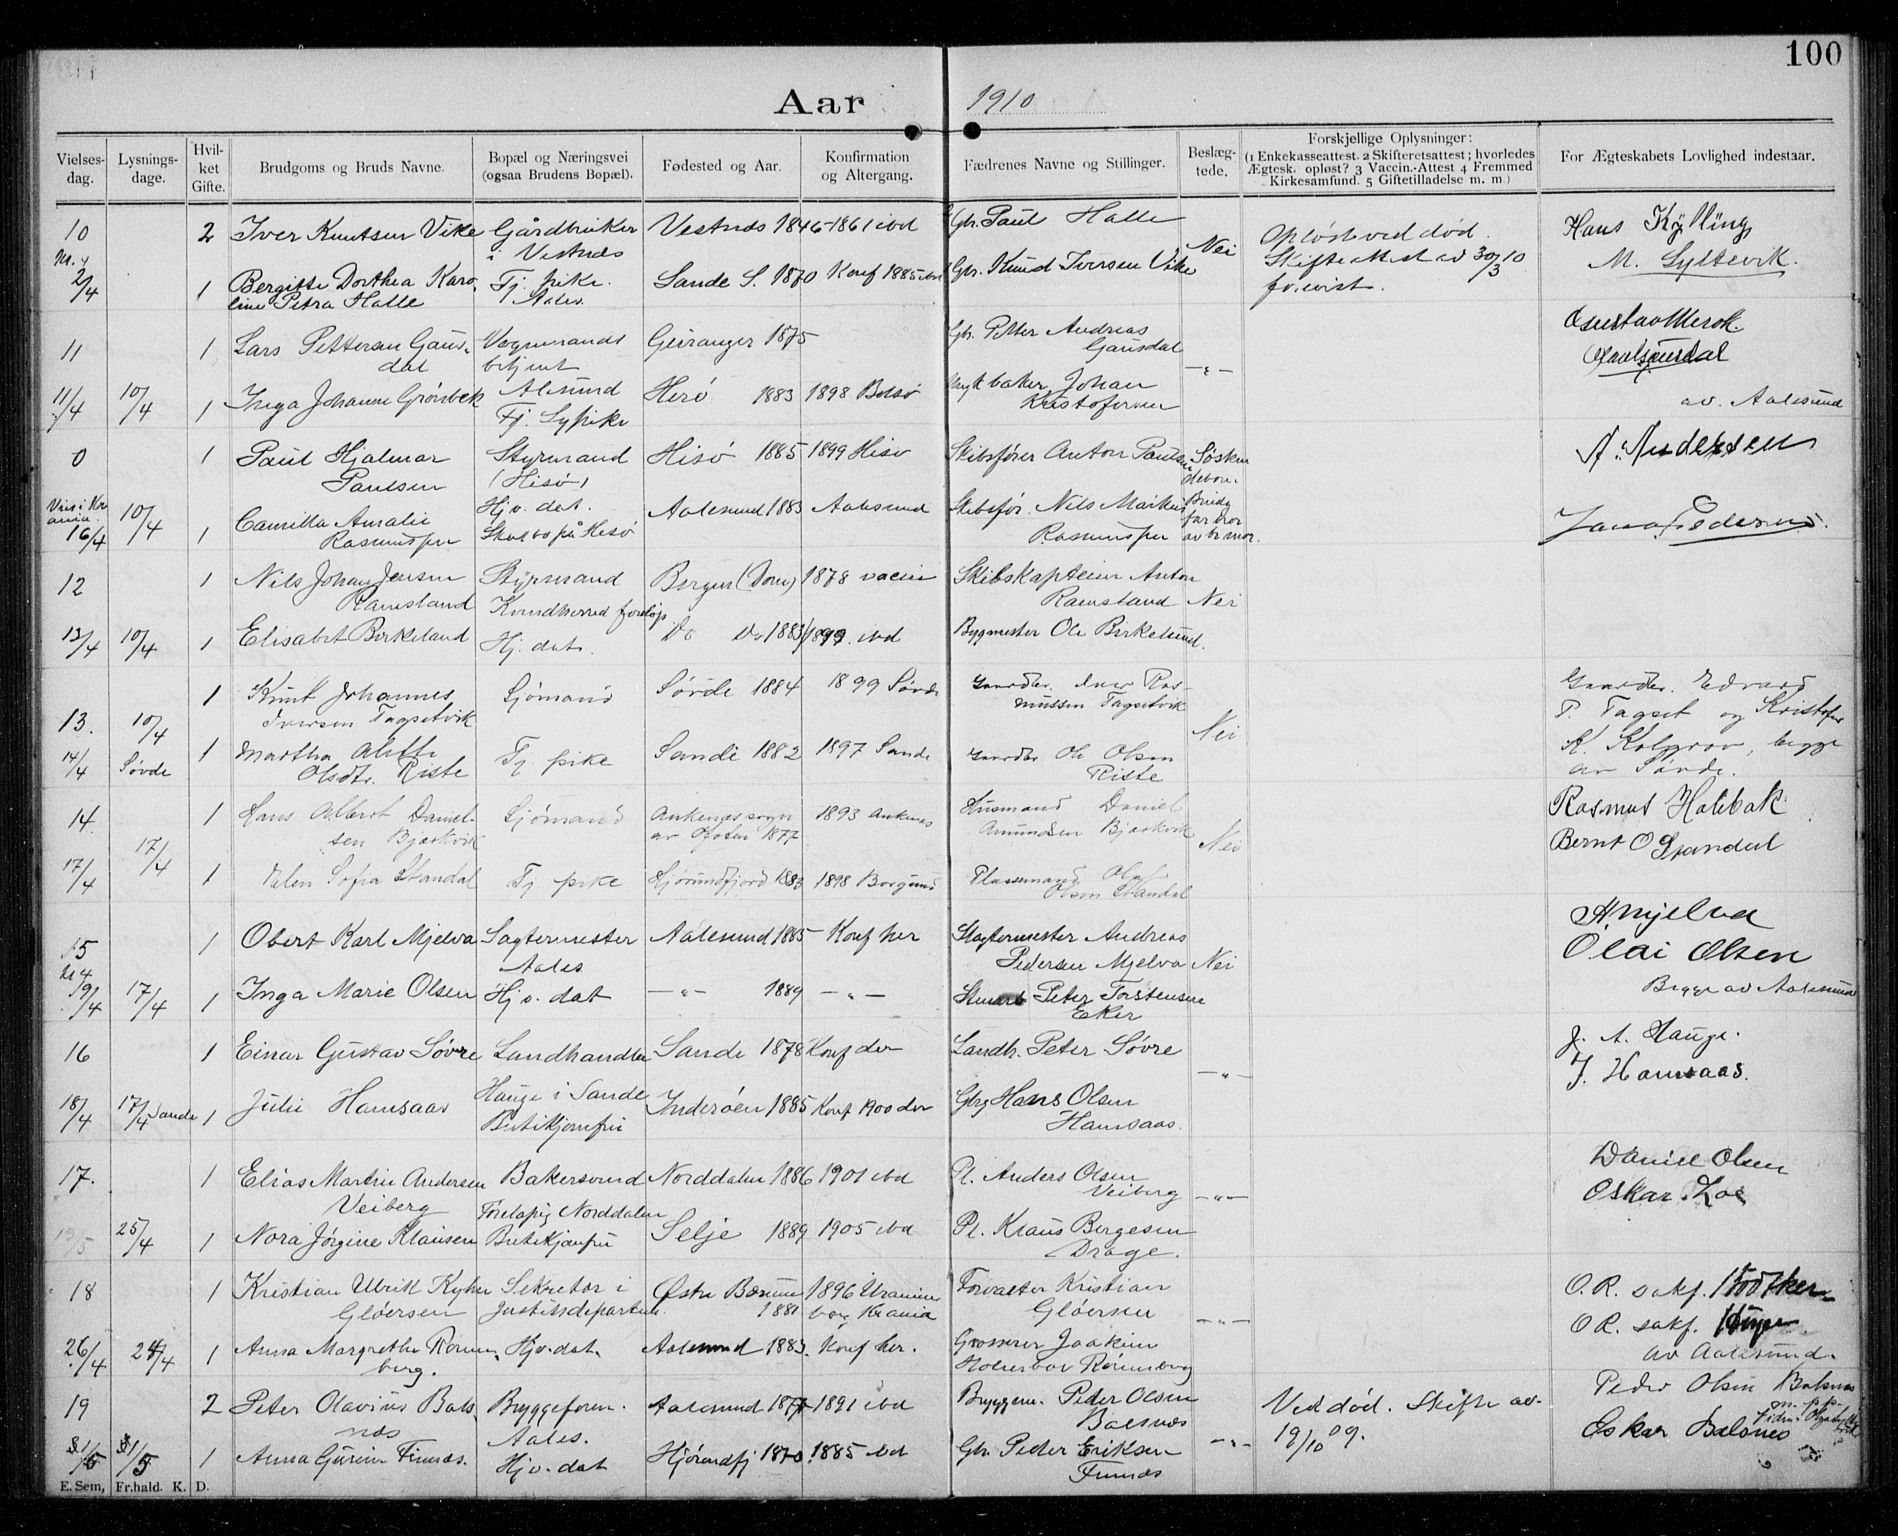 100
Aar 1910
Vielses-dag. Lysnings-dage. Hvil-ket Gifte. Brudgoms og Bruds Navne. Bopæl og Næringsvei (ogsaa Brudens Bopæl). Fødested og Aar. Konfirmation og Altergang. Fædrenes Navne og Stillinger. Beslæg-tede. Forskjellige Oplysninger: (1 Enkekasseattest. 2 Skifteretsattest; hvorledes Ægtesk. opløst? 3 Vaccin.-Attest 4 Fremmed Kirkesamfund. 5 Giftetilladelse m. m.) For Ægteskabets Lovlighed indestaar.
10 2 Iver Knutsen Vike Gårdbruker i Vestnes Vestnes 1846 1861 ibd Gbr. Paul Halle Nei Opløst ved død. Skifteattest av 30/3 10 forevist. Hans Kylling
2/4 1 Bergitte Dorthea Karoline Petra Halle Tj. pike Aales. Sande S. 1870 Konf 1885 ibd Gbr. Knud Iversen Vike M. Syltevik.
11 1 Lars Petteran Gausdal Vognmands betjent Geiranger 1875 Gbr. Petter Andreas Gausdal —"—
11/4 10/4 1 Inga Johanne Grönbek Alesund Tj. Sypike Herö 1883 1898 Bolsö baker Johan Kristofersen av. Aalesund
0 1 Paul Hjalmar Paulsen Styrmand (Hisö) Hisö 1885 1899 Hisö Skibsfører Anton Paulsen Søsken A. Andersen
16/4 10/4 1 Camilla Amalie Rasmussen Hjv. dat. på Hisö Aalesund 1883 Aalesund Skibsfør. Nils Markus Rasmussen Pedersen.
12 1 Nils Johan Jensen Ramsland Styrmand Kvindherred foreløp Bergen (Dom) 1878 vaccin Skibskaptein Anton Ramsland Nei
13/4 10/4 1 Elisabet Birkeland Hj. dat. Do Do 1883 1899 ibd Bygmester Ole Birkelund.
13. 10/4 1 Knut Johannes Iversen Tagsetvik Sjömand Sövde 1884 1899 Sövde Gaardbr. Iver Rasmussen Tagsetvik Nei Gaardbr. Edvard P. Tagset og Kristofer
14/4 Sövde 1 Martha Olsdtr. Riste Tj. pike Sande 1882 1897 Sande Gaardbr Ole Olsen Riste K. Kolgrov, begge av Sövde.
14. 17/4 1 Hans Albert Danielsen Bjerkvik Sjömand Ankenes sogn av Ofoten 1877 1893 Ankenes Husmand Daniel Amundsen Bjerkvik Nei Rasmus Holebak
17/4 1 Elen Sofia Standal Tj pike Hjörundfjord 1883 1898 Borgund Plassemand Ole Olsen Standal Bernt O Standal
15 1 Obert Karl Mjelva Slagtermester Aales Aalesund 1885 Konf her Slagtermester Andreas Pedersen Mjelva Nei A Mjelva
19/4 17/4 1 Inga Marie Olsen Hjv. dat —"— 1889 —"— Stuert Peter Torstensen Eker Olai Olsen Begge av Aalesund
16 1 Einar Gustav Søvre Landhandler Sande 1878 Konf der Landh. Peter Søvre —"— J. A. Hauge.
18/4 17/4 Sande 1 Julie Hamsaas Hauge i Sande Butikjomfru Inderøen 1885 Konf 1900 der Gbr Hans Olsen Hamsaas. J. Hamsaas.
17. 1 Elias Martin Andersen Veiberg Bakersvend Foreløpig Norddalen Norddalen 1886 1901 ibd Pl. Anders Olsen Veiberg —"— Daniel Olsen
19/5 25/4 1 Nora Jørgine Klausen Butikjomfru Selje 1889 1905 ibd Pl. Klaus Børgesen Drage. Oskar Loe
18 1 Kristian Ulrik Kyhn Gløersen Sekretær i Justitsdepartem. Østre Bærum 1881 1896 Uranien borg Krania Forvalter Kristian Gløersen —"— O. R. sakf.
26/4 24/4 1 Anna Margrethe Rönneberg. Hjv. dat. Aalesund 1883. Konf her. Grosserer Joakim Holmboe Rönneberg O R. sakf. av Aalesund.
19 2 Peter Olavius Balsnes Bryggeform. Aales. Aalesund 1877 1891 ibd Bryggem. Peder Olsen Balsnes Ved død. Skifte av 19/10 09. Peder Olsen Balsnes
31/5 31/5 1 Anna Gurine Finnes. Hjv. dat Hjörundfj 1870. 1885 ibd Gbr. Peder Eriksen Finnes —"— Oskar Balsnes
E. Sem, Fr.hald. K. D.